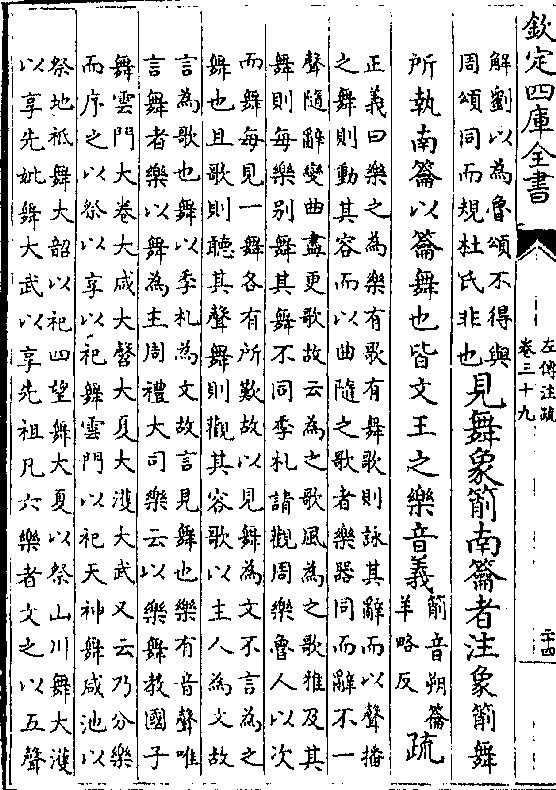 欽定四庫全書
左傳注疏
卷三十九
二十四
解劉以為魯頌不得與
周頌同而規杜氏非也
見舞象箾南籥者注象箾舞
所執南籥以籥舞也皆文王之樂音義
箾音朔籥
羊略反
疏
正義曰樂之為樂有歌有舞歌則詠其辭而以聲播
之舞則動其容而以曲隨之歌者樂器同而辭不一
聲隨辭變曲盡更歌故云為之歌風為之歌雅及其
舞則每樂别舞其舞不同季札請觀周樂魯人以次
而舞每見一舞各有所歎故以見舞為文不言為之
舞也且歌則聽其聲舞則觀其容歌以主人為文故
言為歌也舞以季札為文故言見舞也樂有音聲唯
言舞者樂以舞為主周禮大司樂云以樂舞教國子
舞雲門大卷大咸大㲈大夏大濩大武又云乃分樂
而序之以祭以享以祀舞雲門以祀天神舞咸池以
祭地祇舞大韶以祀四望舞大夏以祭山川舞大濩
以享先妣舞大武以享先祖凡六樂者文之以五聲